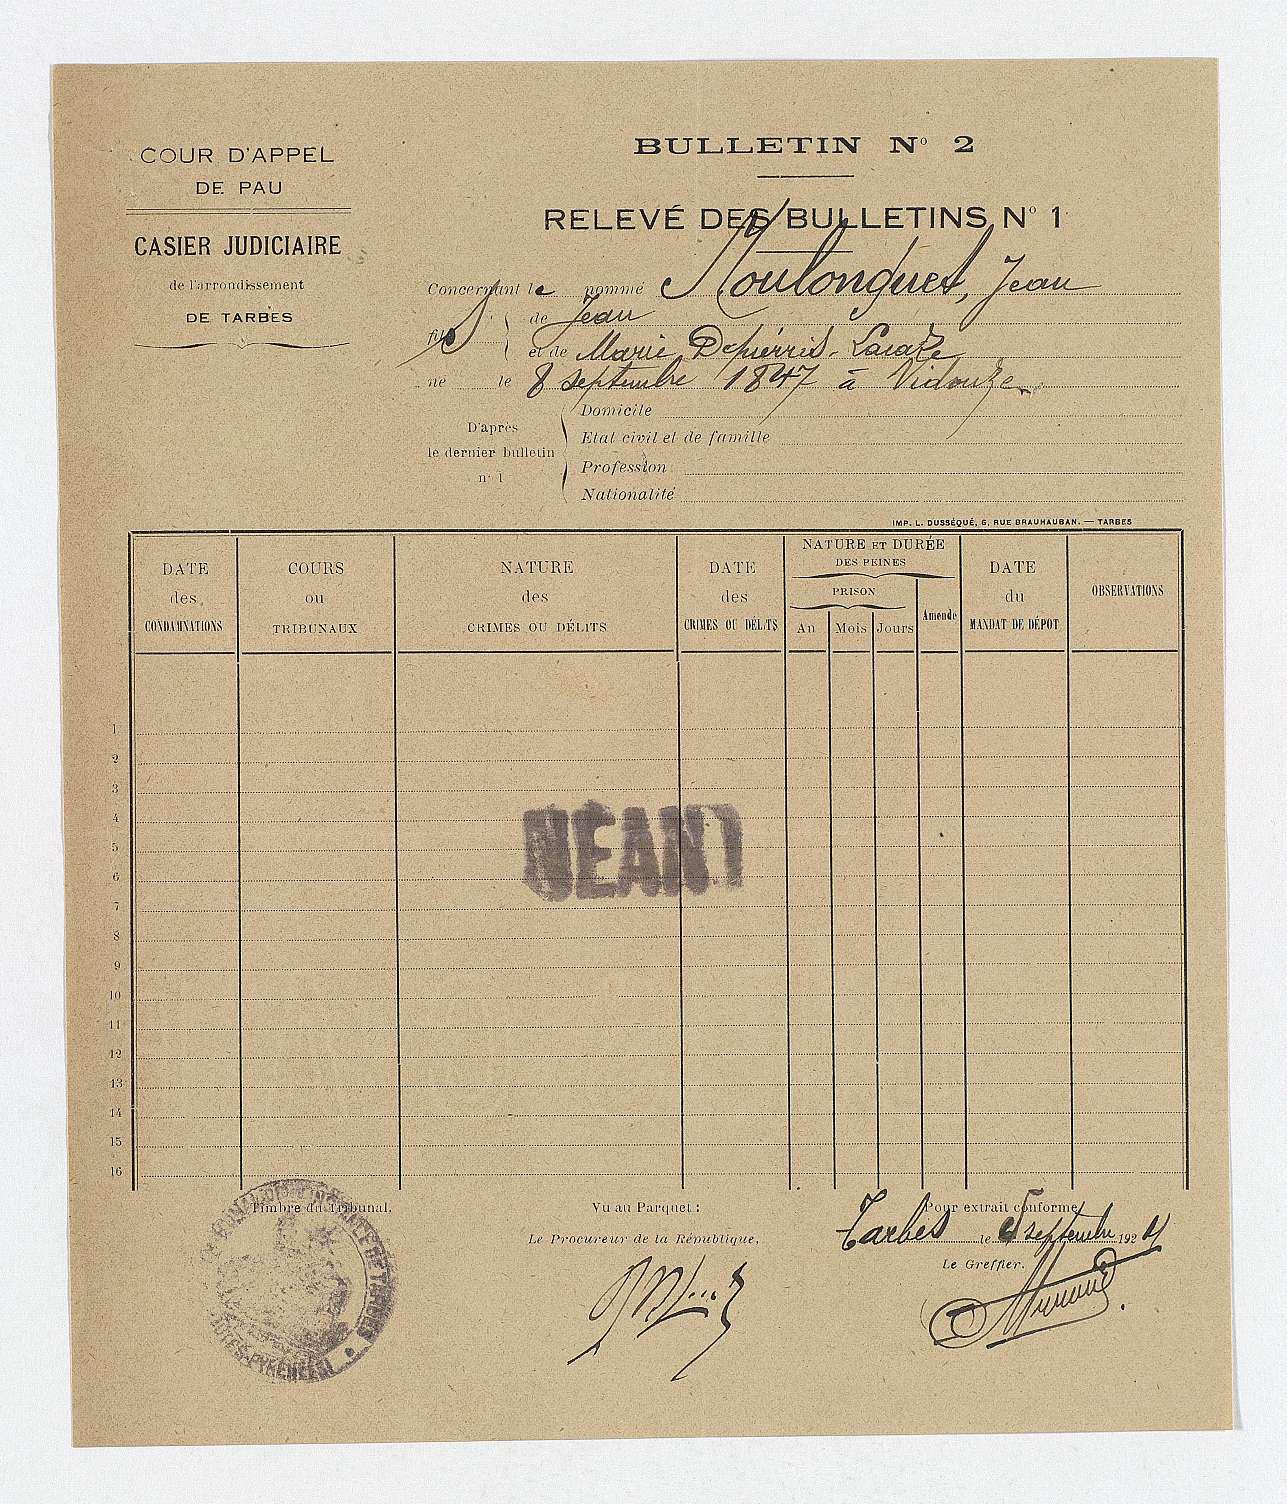 COUR D'APPEL
DE PAU
CASIER JUDICIAIRE
de l'arrondissement
DE TARBES
BULLETIN N° 2
RELEVÉ DES BULLETINS N° 1
Concernant le nommé Moulonguet, Jean
fils de Jean
et de Marie Depierris-Lacaze
né le 8 septembre 1847 à Vidouze
D'après
le dernier bulletin
n° 1
Domicile
Etat civil et de famille
Profession
Nationalité
IMP. L. DUSSÉQUÉ, 6, RUE BRAUHAUBAN. — TARBES
DATE
des
CONDAMNATIONS
COURS
ou
TRIBUNAUX
NATURE
des
CRIMES OU DÉLITS
DATE
des
CRIMES OU DÉLITS
NATURE ET DURÉE
DES PEINES
PRISON
An
Mois
Jours
Amende
DATE
du
MANDAT DE DÉPOT
OBSERVATIONS
1
2
3
4
5
6
7
8
9
10
11
12
13
14
15
16
NÉANT
Timbre du Tribunal.
Vu au Parquet :
Le Procureur de la République,
Pour extrait conforme
Tarbes le septembre 192
Le Greffier.